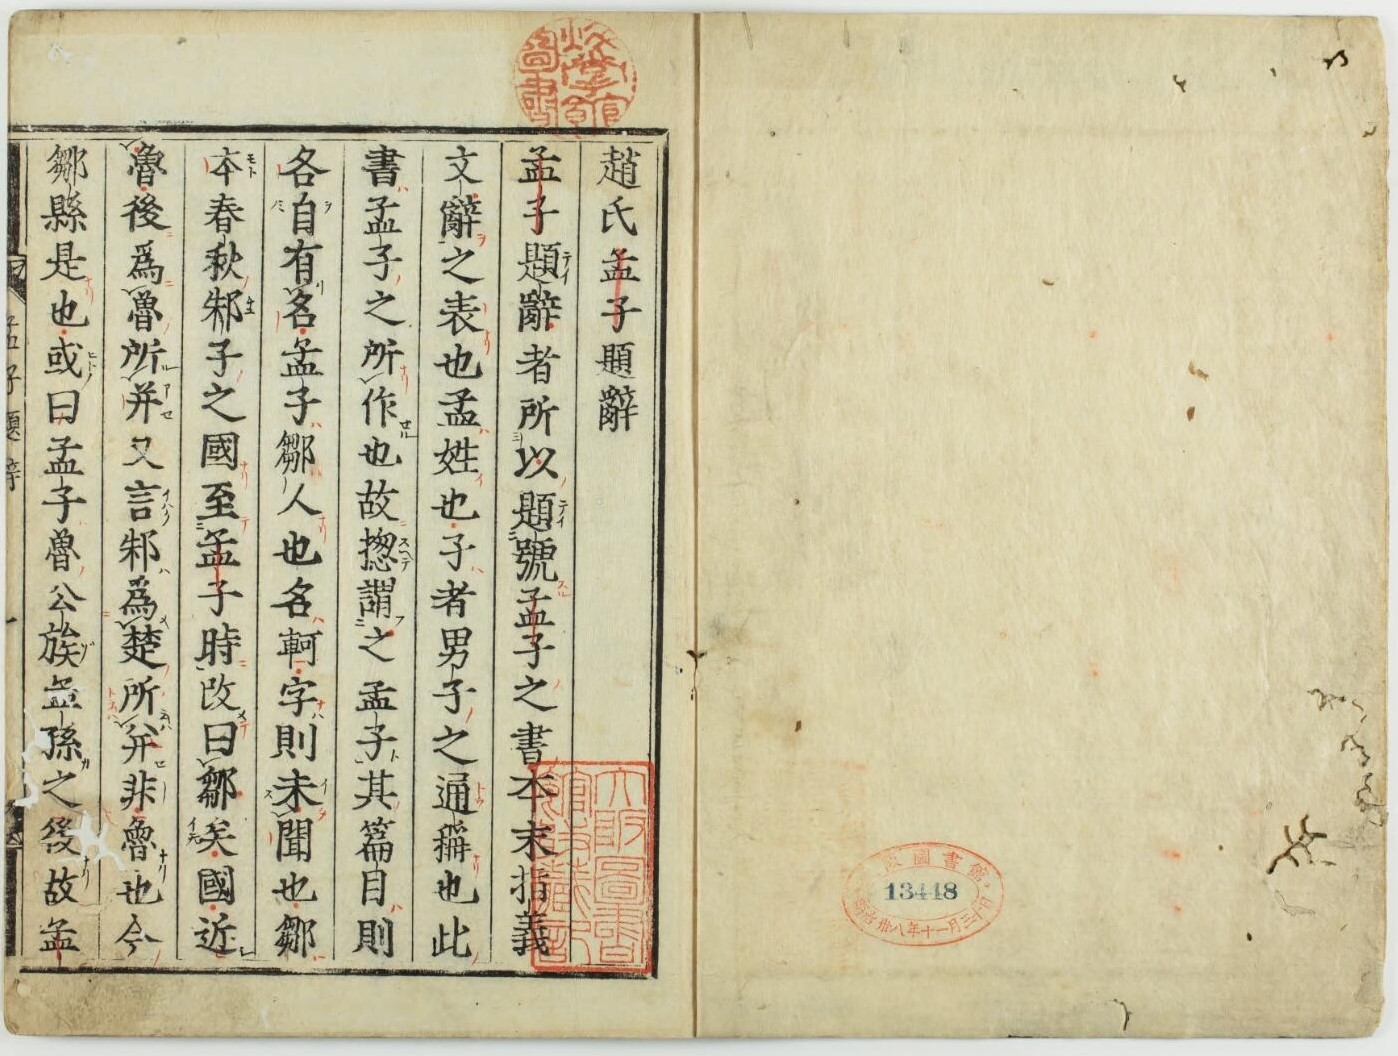 趙氏孟子題辭
孟子題辭者所以題號孟子之書本末指義
文辭之表也孟姓也子者男子之通稱也此
書孟子之所作也故揔謂之孟子其篇目則
各自有名孟子鄒人也名軻字則未聞也鄒
本春秋邾子之國至孟子時改曰鄒矣國近
魯後爲魯所并又言邾爲楚所并非魯也今
鄒縣是也或曰孟子魯公族孟孫之後故孟
孟子題辭
大阪圖書
圖書館
13448
八年十一月三